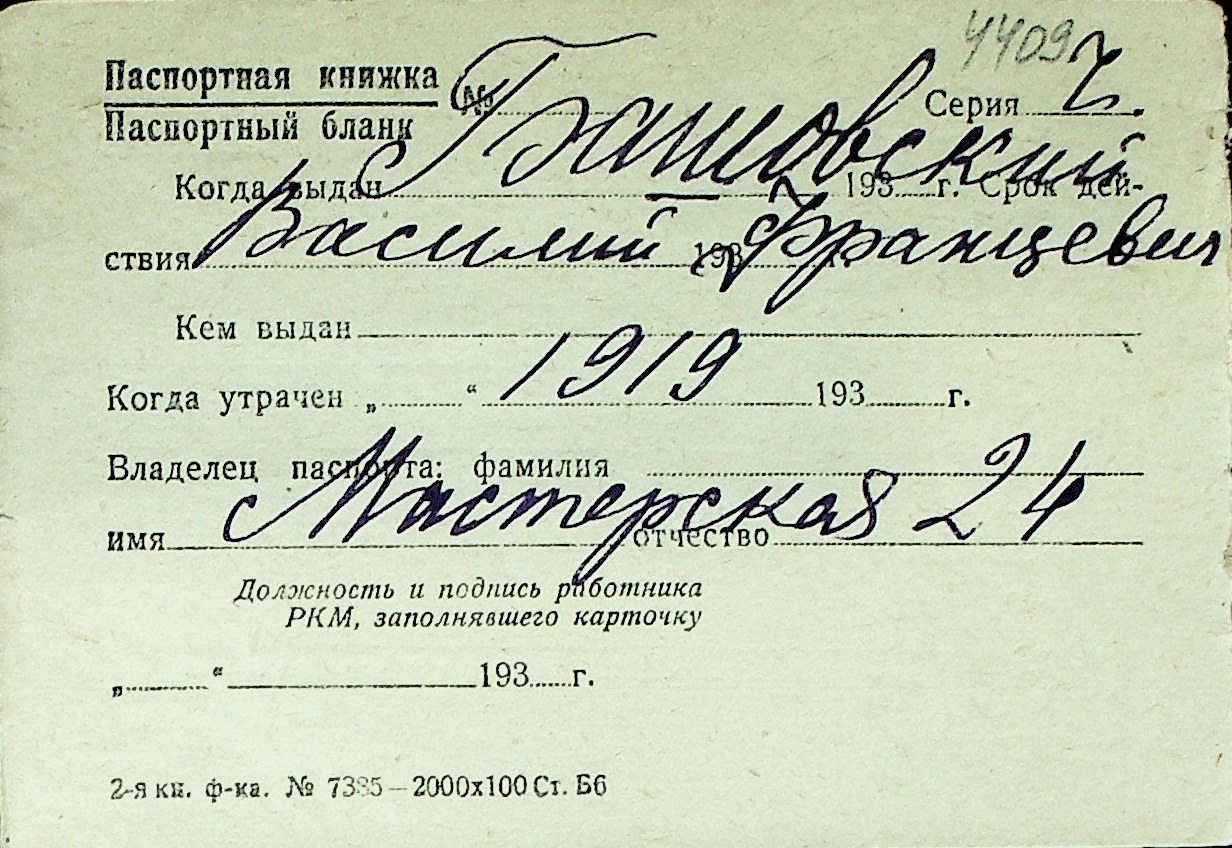 4409
Паспортная книжка № Серия
Паспортный бланк
Когда выдан 193 г. Срок дей-
ствия 193 г.
Василий Францевич
Кем выдан
1919
Когда утрачен „ “ 193 г.
Владелец паспорта: фамилия
Мастерская 24
имя отчество
Должность и подпись работника
РКМ, заполнявшего карточку
„ “ 193 г.
2-я кн. ф-ка. № 7385—2000х100 Ст. Б6